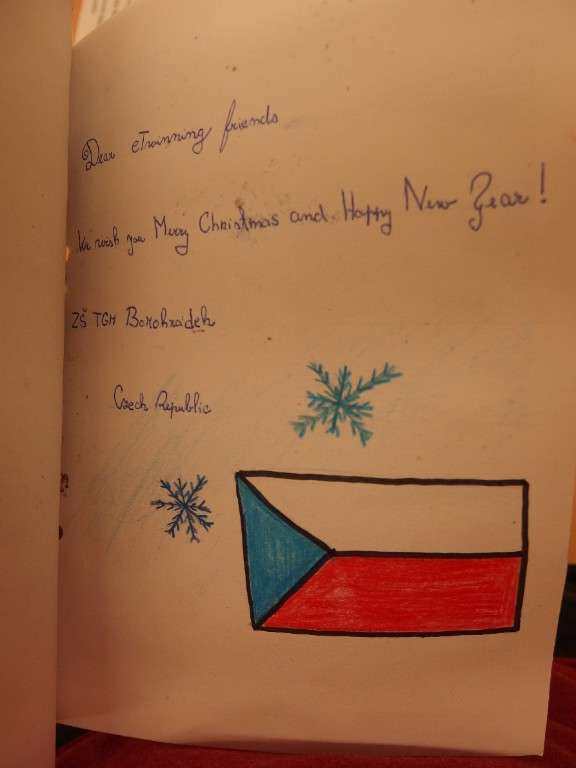 Dear eTwinning friends
We wish you Merry Christmas and Happy New Year!
ZŠ TGM Borohrádek
Czech Republic